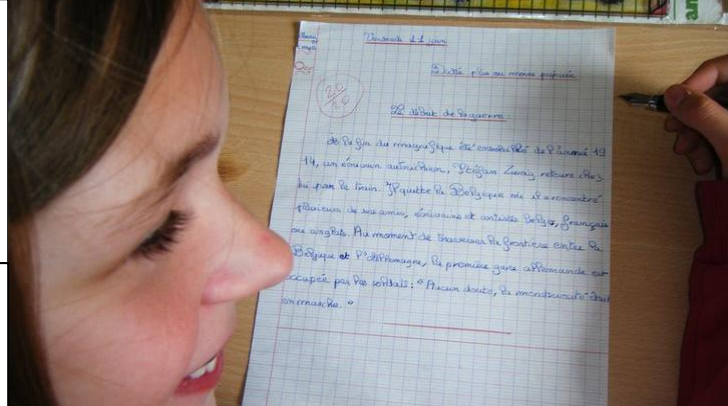 Vendredi 11 juin
Dictée plus ou moins préparée
20
Le début de la guerre
de la fin du magnifique été ensoleillé de l'année 19
14, un écrivain autrichien, Stefan Zweig, retourne chez
lui par le train. Il quitte la Belgique où il a rencontré
plusieurs de ses amis, écrivains et artistes belges, français
ou anglais. Au moment de traverser la frontière entre la
Belgique et l'Allemagne, la première gare allemande est
occupée par les soldats : " Aucun doute, la monstruosité était
en marche. "